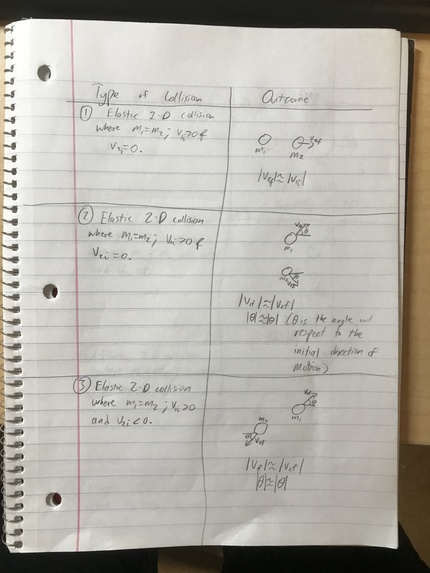 Type of Collision
Outcome
① Elastic 2-D collision
where m₁=m₂; v₁ᵢ>0 &
v₂ᵢ=0.
m₁
m₂
v₂f
|v₂f|≈|v₁ᵢ|
② Elastic 2-D collision
where m₁=m₂; v₁ᵢ>0 &
v₂ᵢ=0.
θ
m₁
|v₁f|≈|v₂f|
|θ|≈|θ| (θ is the angle w/
respect to the
initial direction of
motion)
③ Elastic 2-D collision
where m₁=m₂; v₁ᵢ>0
and v₂ᵢ<0.
θ
m₁
m₂
θ
v₂f
|v₁f|≈|v₂f|
|θ|≈|θ|